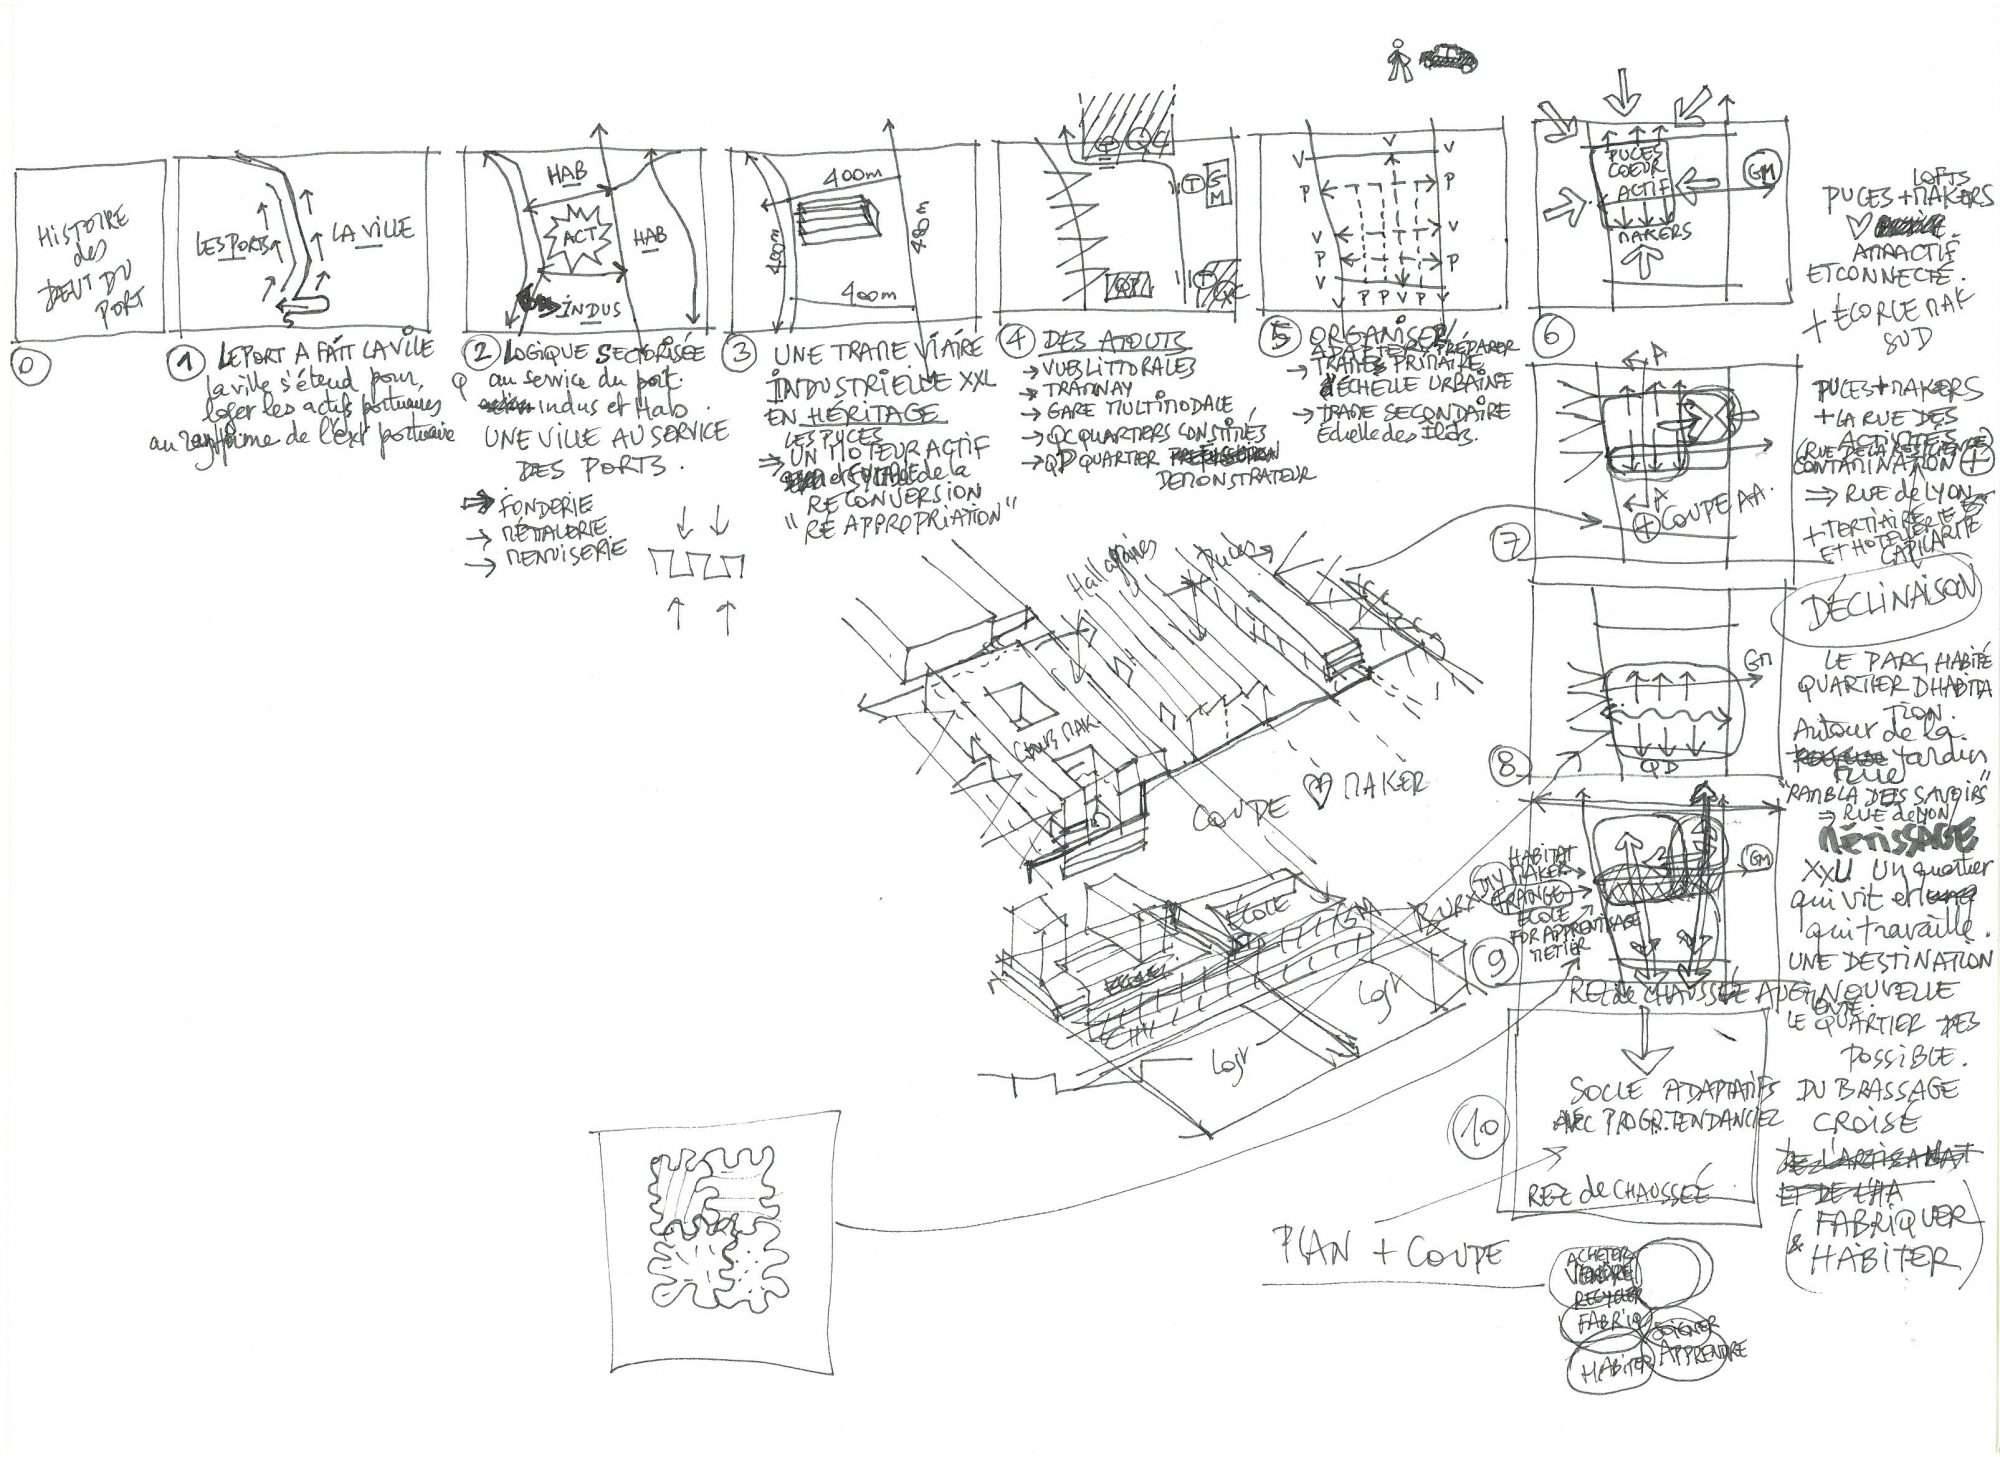 HISTOIRE
des
DU
PORT
0
LES PORTS
LA VILLE
1 LE PORT A FAIT LA VILLE
la ville s'étend pour
loger les actifs portuaires
au rythme de l'ext portuaire
HAB
ACT
HAB
INDUS
2 LOGIQUE SECTORISÉE
au service du port.
indus et Hab.
UNE VILLE AU SERVICE
DES PORTS.
⇒ FONDERIE
→ METALERIE
→ MENUISERIE
400m
400m
480m
400m
3 UNE TRAME VIAIRE
INDUSTRIELLE XXL
EN HÉRITAGE
LES PUCES
⇒ UN MOTEUR ACTIF
et SYMBOLE de la
RECONVERSION
"RE APPROPRIATION"
QC
T
G
M
QD
T
4 DES ATOUTS
→ VUES LITTORALES
→ TRAMWAY
→ GARE MULTIMODALE
→ QC QUARTIERS CONSTITUÉS
→ QD QUARTIER
DEMONSTRATEUR
V V V
P P
V V
P P
V V
P P V P
5 ORGANISER
ADAPTER, PRÉPARER
→ TRAME PRIMAIRE
d'ÉCHELLE URBAINE
→ TRAME SECONDAIRE
Échelle des Ilots.
PUCES
COEUR
ACTIF
MAKERS
GM
6
LOFTS
PUCES + MAKERS
ATTRACTIF
ET CONNECTÉ.
+ ECOLE MAK
SUD
A
A
+ COUPE AA.
7
PUCES + MAKERS
+ LA RUE DES
ACTIVITÉS
CONTAMINATION +
⇒ RUE de LYON
+ TERTIAIRE
ET HOTELLERIE
CAPILARITÉ
DÉCLINAISON
GM
QD
8
LE PARC HABITÉ
QUARTIER D'HABITA
TION.
Autour de la
JARDIN
RUE
"RAMBLA DES SAVOIRS"
⇒ RUE de LYON
MÉTISSAGE
XXU Un quartier
qui vit et
qui travaille.
UNE DESTINATION
NOUVELLE
LE QUARTIER DES
POSSIBLE.
DU BRASSAGE
CROISÉ
DE L'ARTISANAT
ET DE L'HA
(FABRIQUER
& HABITER)
HABITAT
DIY MAKER
FRANGE
ECOLE
FOR APPRENTISSAGE
METIER
GM
9
REZ de CHAUSSÉE
10
SOCLE ADAPTATIFS
AVEC PROGR. TENDANCIEL
REZ de CHAUSSÉE
PLAN + COUPE
ACHETER
VENDRE
RECYCLER
FABRIQ
HABITER
SOIGNER
APPRENDRE
Puces
COUPE ♡ MAKER
ÉCOLE
Logt
Logt